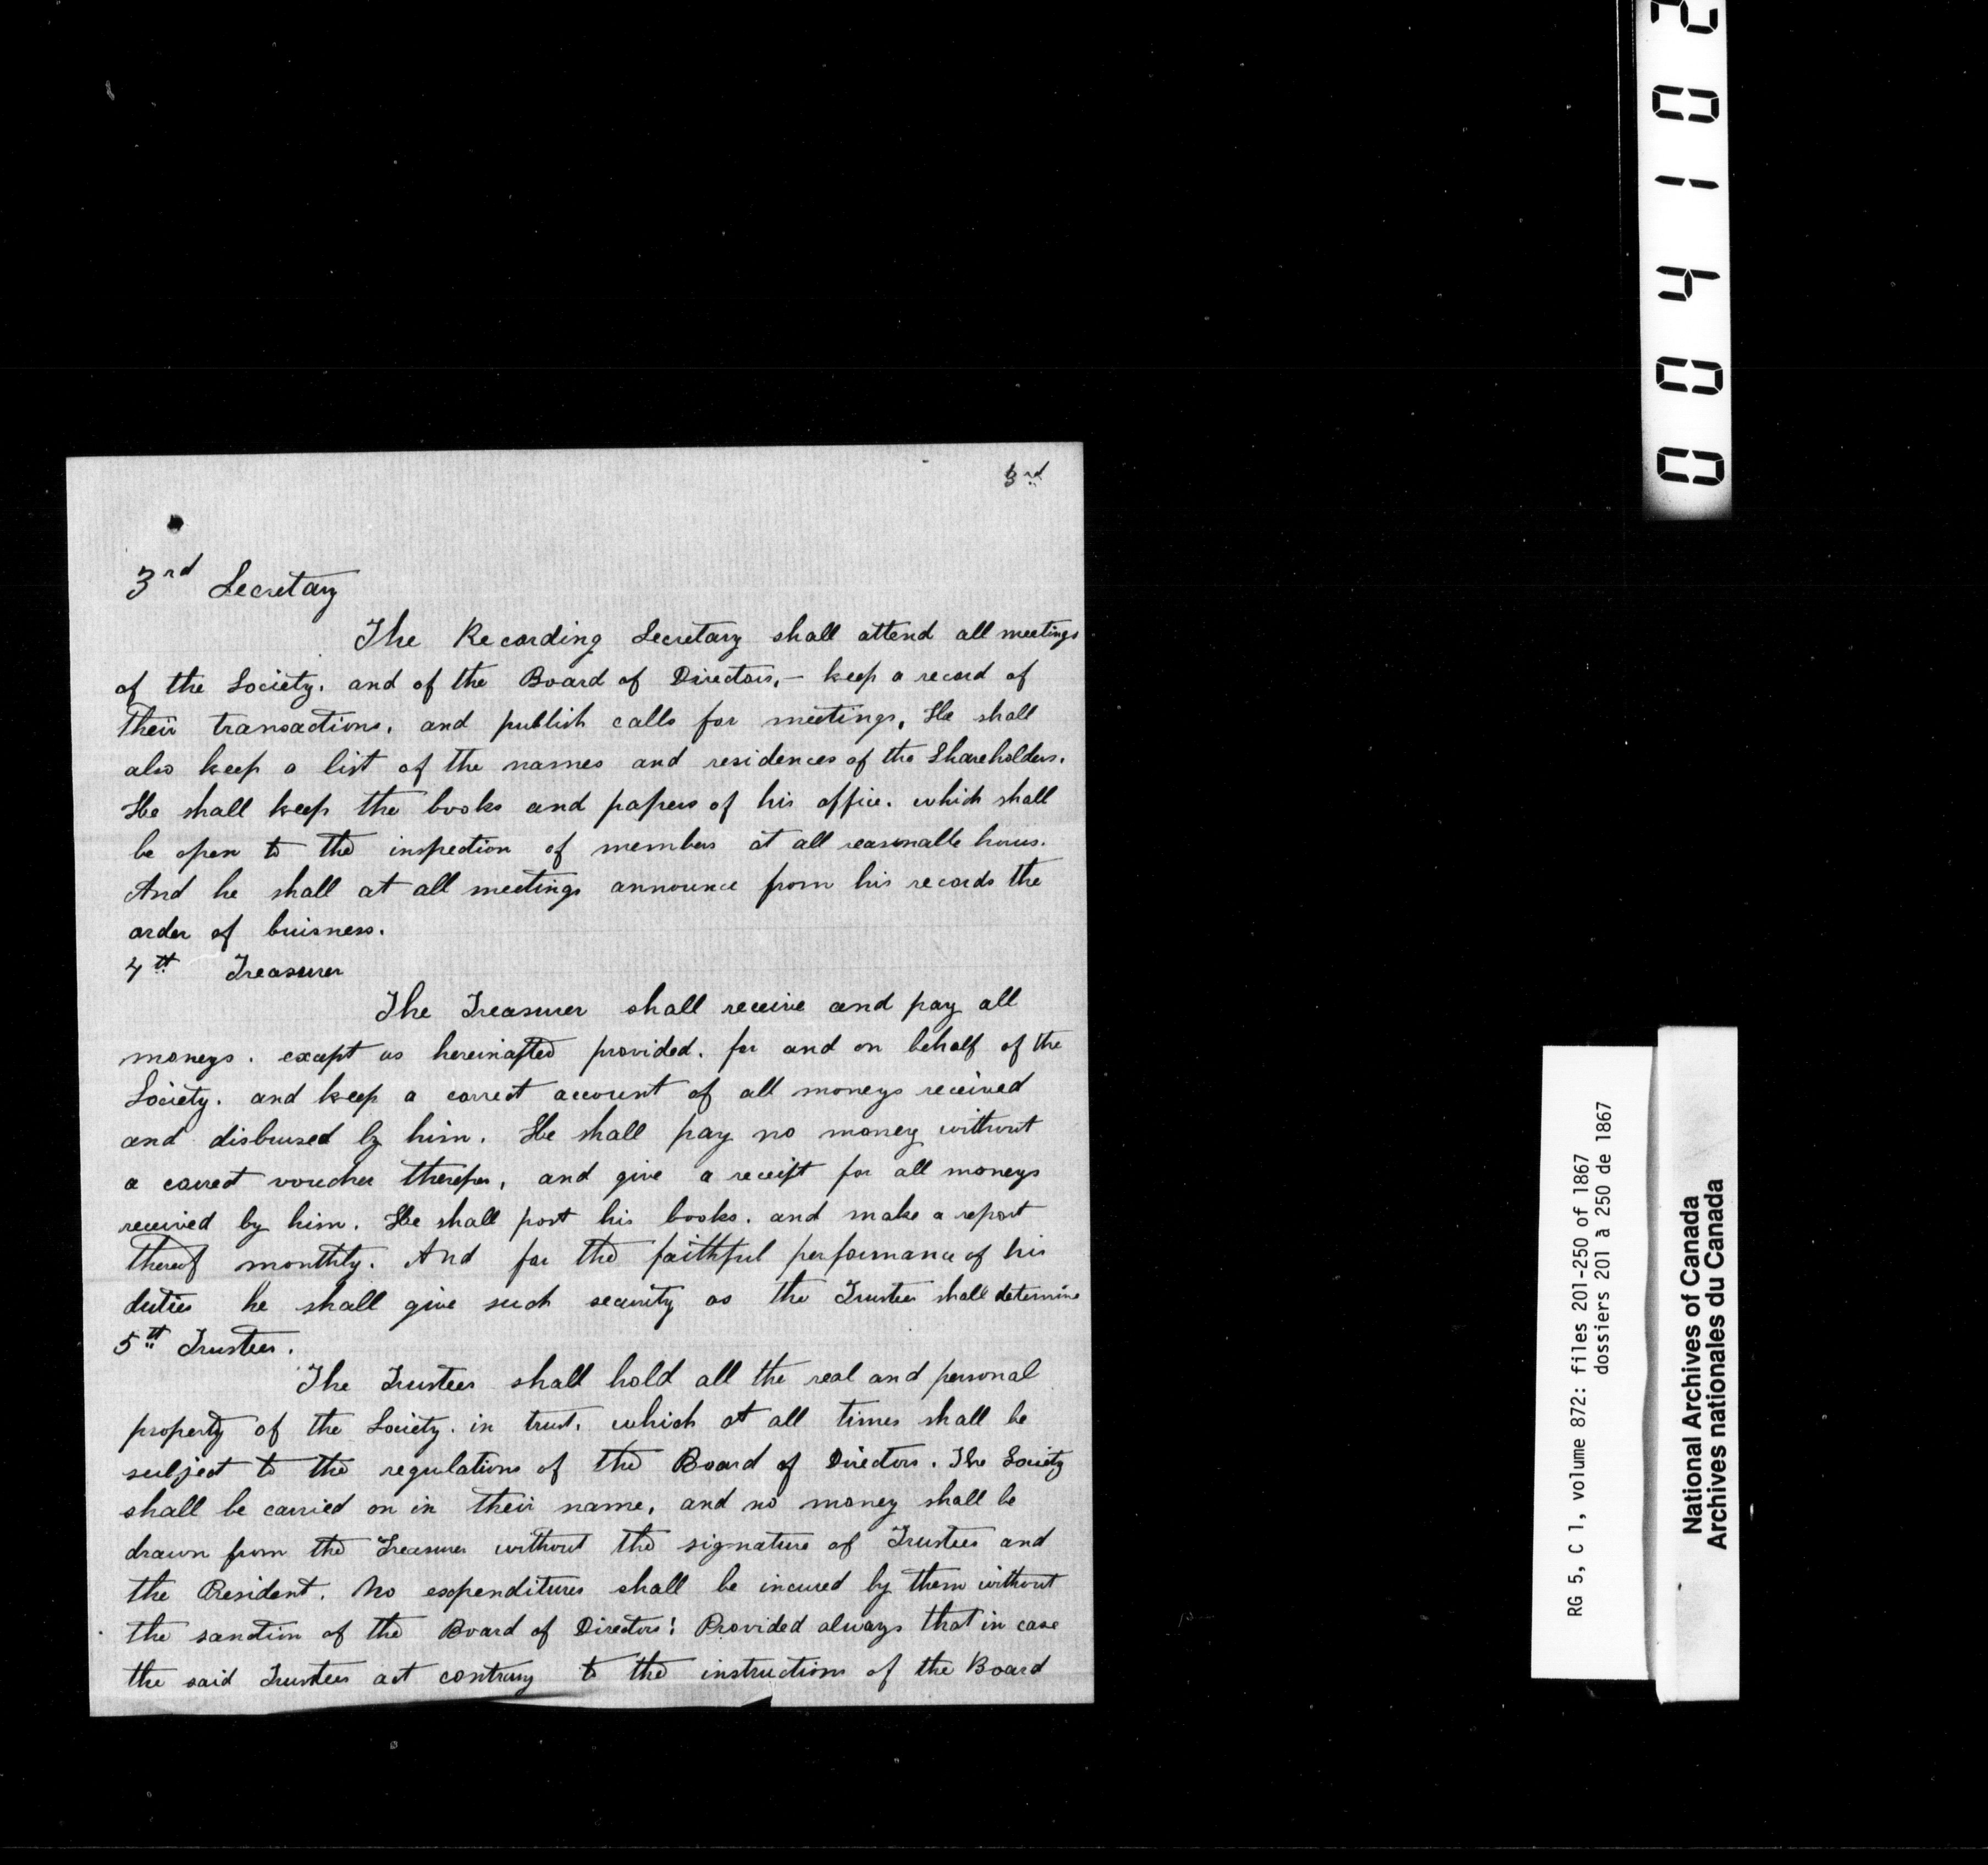 3rd
3rd Secretary
The Recording Secretary shall attend all meetings
of the Society. and of the Board of Directors,- keep a record of
their transactions, and publish calls for meetings, He shall
also keep a list of the names and residences of the Shareholders.
He shall keep the books and papers of his office. which shall
be open to the inspection of members at all reasonable hours.
And he shall at all meetings announce from his records the
order of buisness.
4th Treasurer
The Treasurer shall receive and pay all
moneys. except as hereinafter provided. for and on behalf of the
Society. and keep a correct account of all moneys received
and disbursed by him. He shall pay no money without
a correct voucher therefor, and give a receipt for all moneys
received by him. He shall post his books. and make a report
thereof monthly. And for the faithful performance of his
duties he shall give such security as the Trustees shall determine
5th Trustees.
The Trustees shall hold all the real and personal
property of the Society. in trust. which at all times shall be
subject to the regulations of the Board of Directors. The Society
shall be carried on in their name, and no money shall be
drawn from the Treasurer without the signature of Trustees and
the President. No expenditures shall be incured by them without
the sanction of the Board of Directors: Provided always that in case
the said Trustees act contrary to the instructions of the Board
0 0 4 1 0 2
RG 5, C 1, volume 872: files 201-250 of 1867
dossiers 201 à 250 de 1867
National Archives of Canada
Archives nationales du Canada